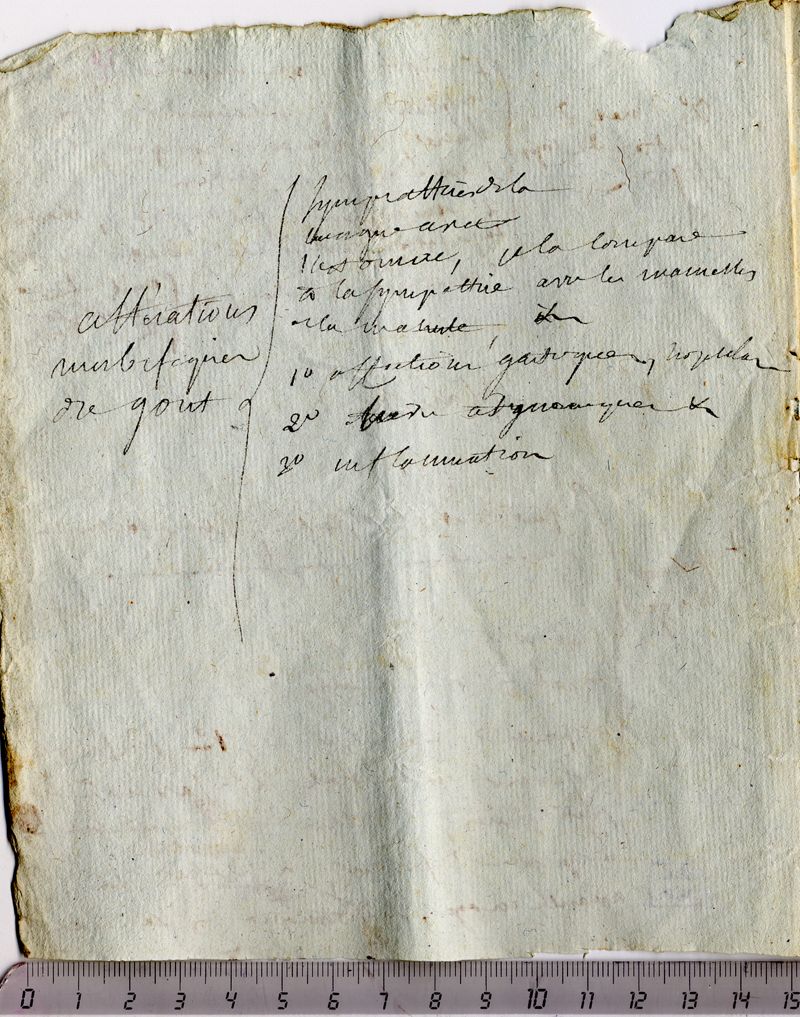 altérations
morbifiques
de gout
sympathies de la
langue avec
l'estomac, je la compare
à la sympathie avec les mamelles
de la
1º affections gastriques,
2º adynamiques &
3º inflammation
0 1 2 3 4 5 6 7 8 9 10 11 12 13 14 15